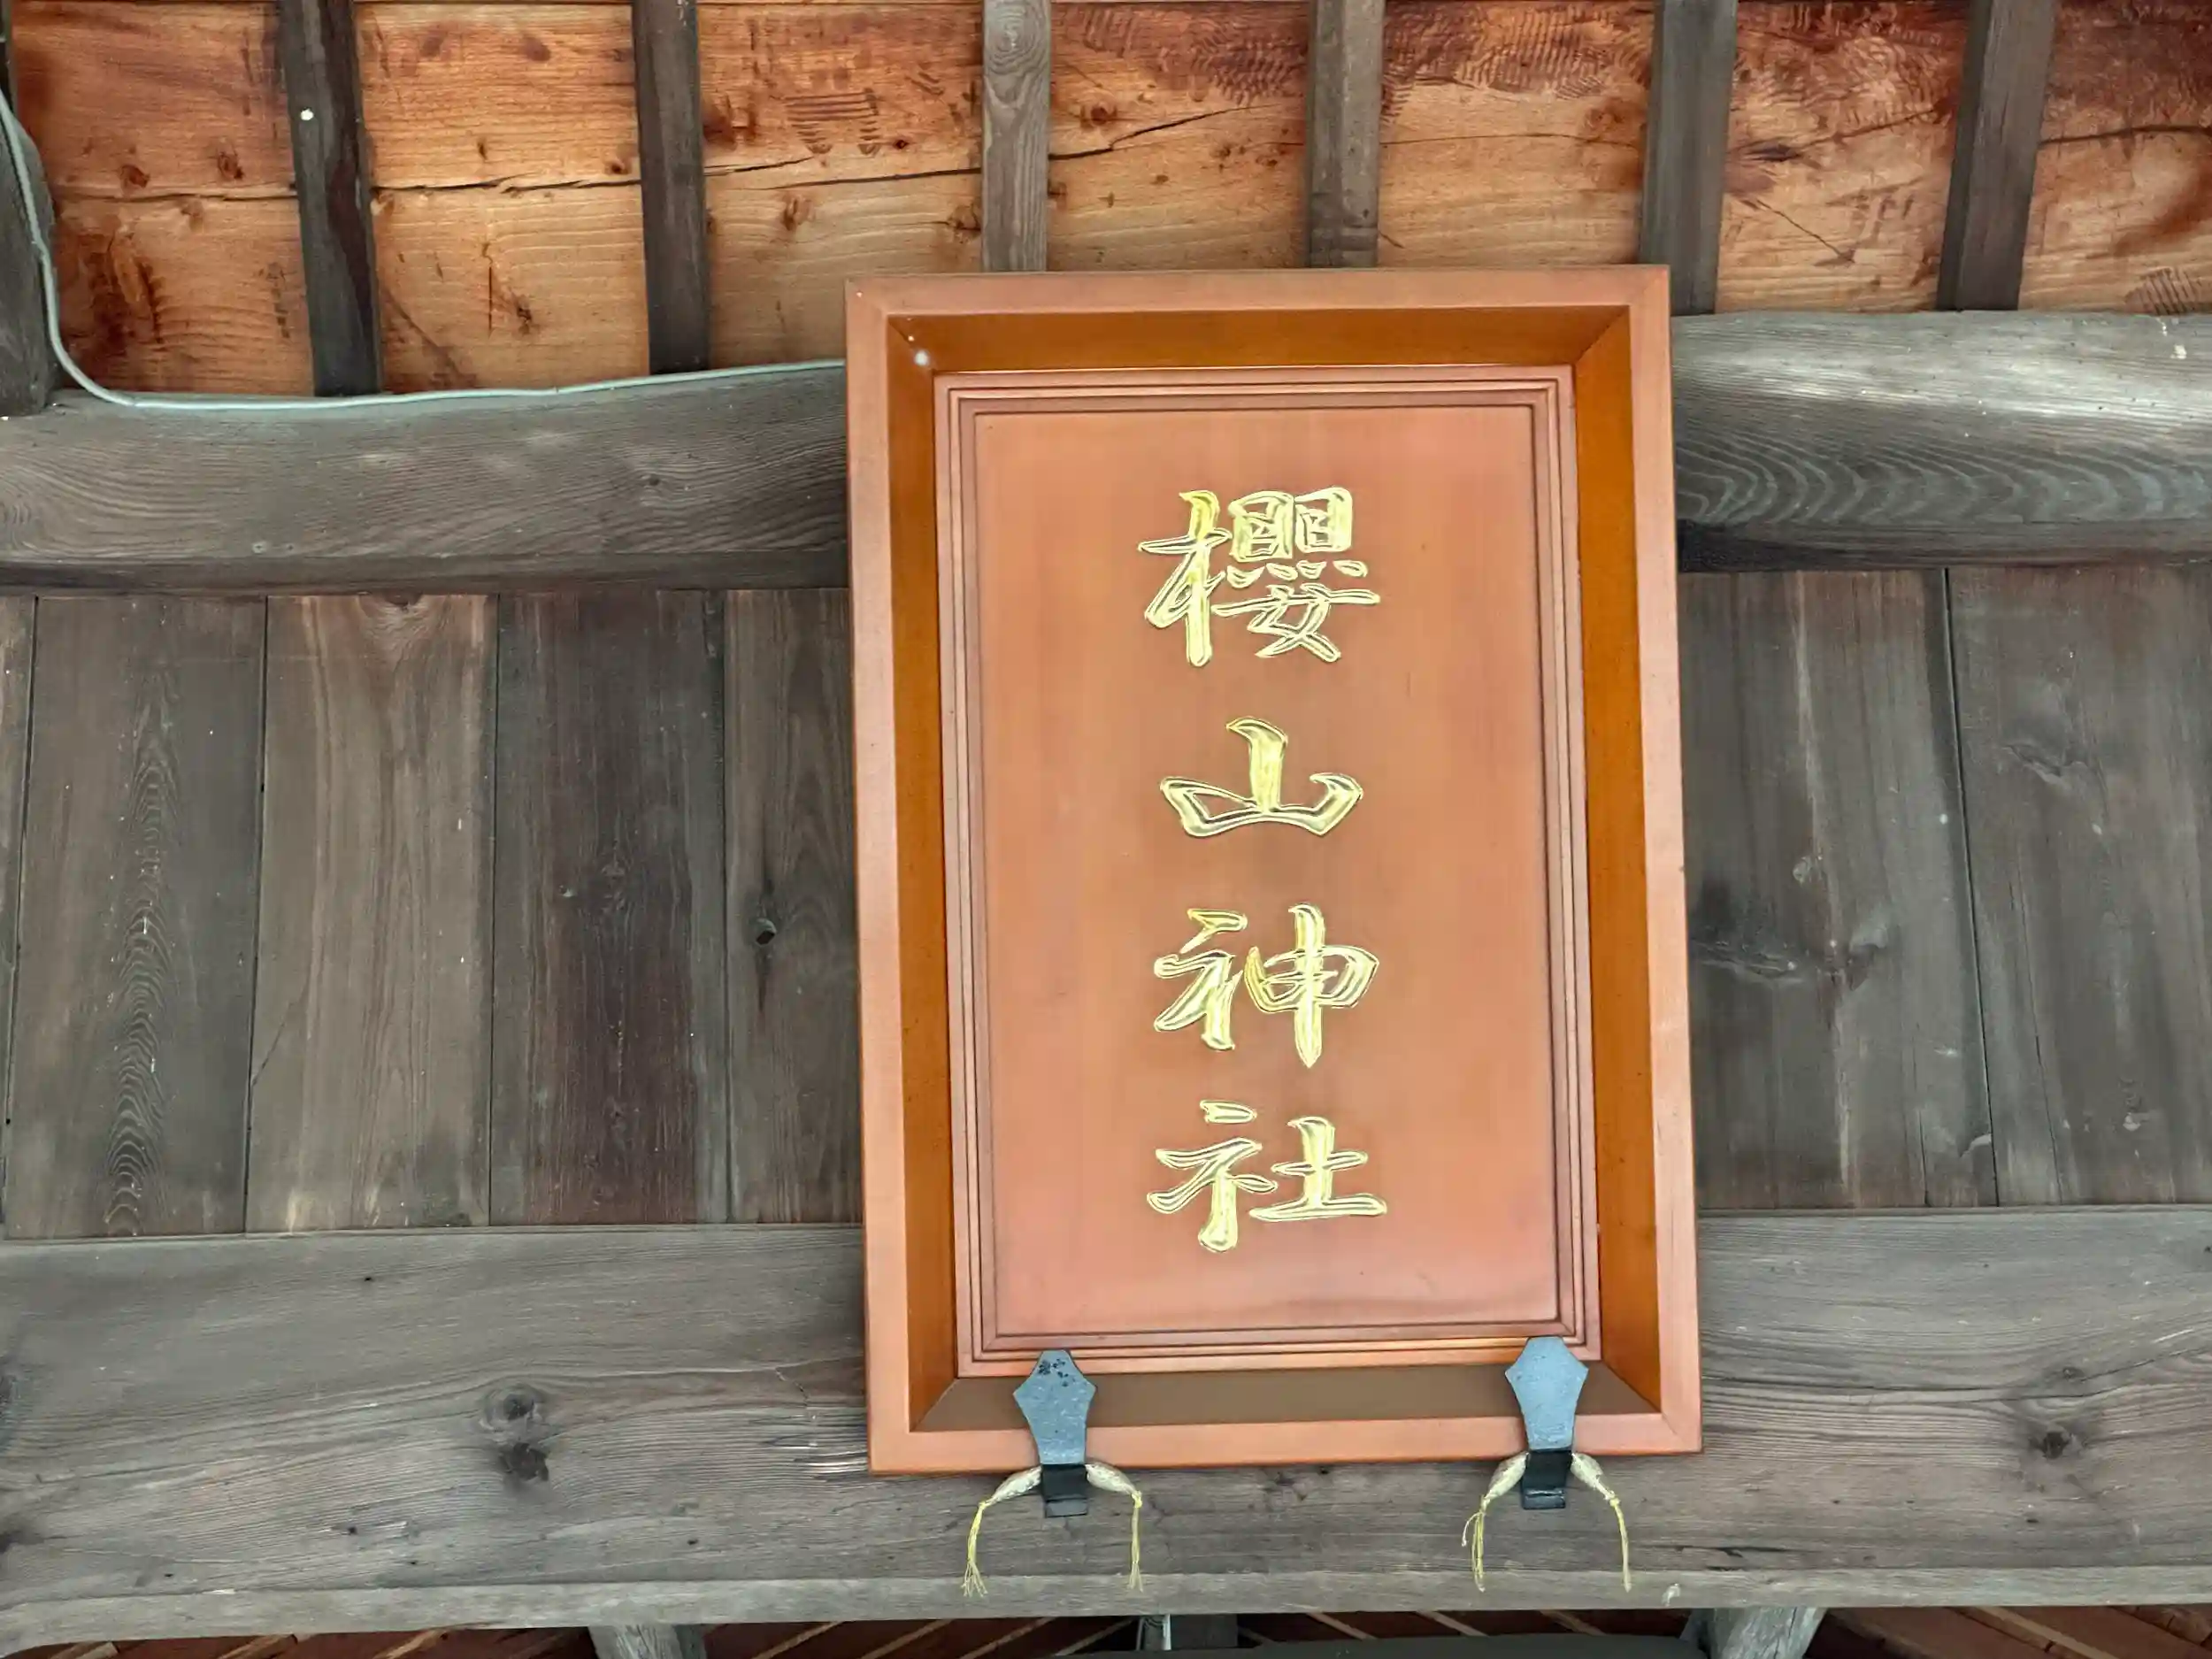 櫻山神社